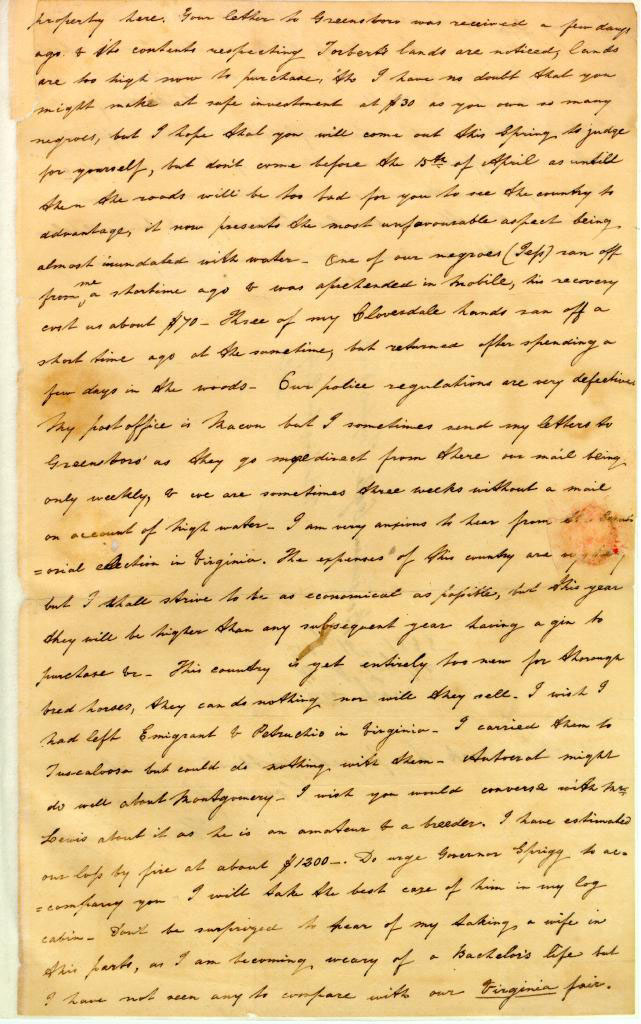 property here. Your letter to Greensboro was received a few days
ago. & its contents respecting Torberts lands are noticed, lands
are too high now to purchase, tho I have no doubt that you
might make at safe investment at $30 as you own so many
negroes, but I hope that you will come out this Spring to judge
for yourself, but don't come before the 15th of April as untill
then the roads will be too bad for you to see the country to
advantage, it now presents the most unfavourable aspect being
almost inundated with water - One of our negroes (Jefs) ran off
from me a shortime ago & was aprehended in Mobile, his recovery
cost us about $70 - Three of my Cloverdale hands ran off a
short time ago at the sametime, but returned after spending a
few days in the woods - Our police regulations are very defective
My post office is Macon but I sometimes send my letters to
Greensboro' as they go more direct from there our mail being
only weekly, & we are sometimes three weeks without a mail
on account of high water - I am very anxious to hear from
=orial election in Virginia. The expenses of this country are
but I shall strive to be as economical as possible, but this year
they will be higher than any subsequent year having a gin to
purchase &c - This country is yet entirely too new for thorough
bred horses, they can do nothing nor will they sell - I wish I
had left Emigrant & Petruchio in Virginia - I carried them to
Tuscaloosa but could do nothing with them - Autocrat might
do well about Montgomery - I wish you would converse with Mr
Lewis about it as he is an amateur & a breeder. I have estimated
our loss by fire at about $1200 -. Do urge Governor Sprigg to ac-
=company you I will take the best care of him in my log
cabin - Don't be surprized to hear of my taking a wife in
this parts, as I am becoming weary of a Bachelor's life but
I have not seen any to compare with our Virginia fair.